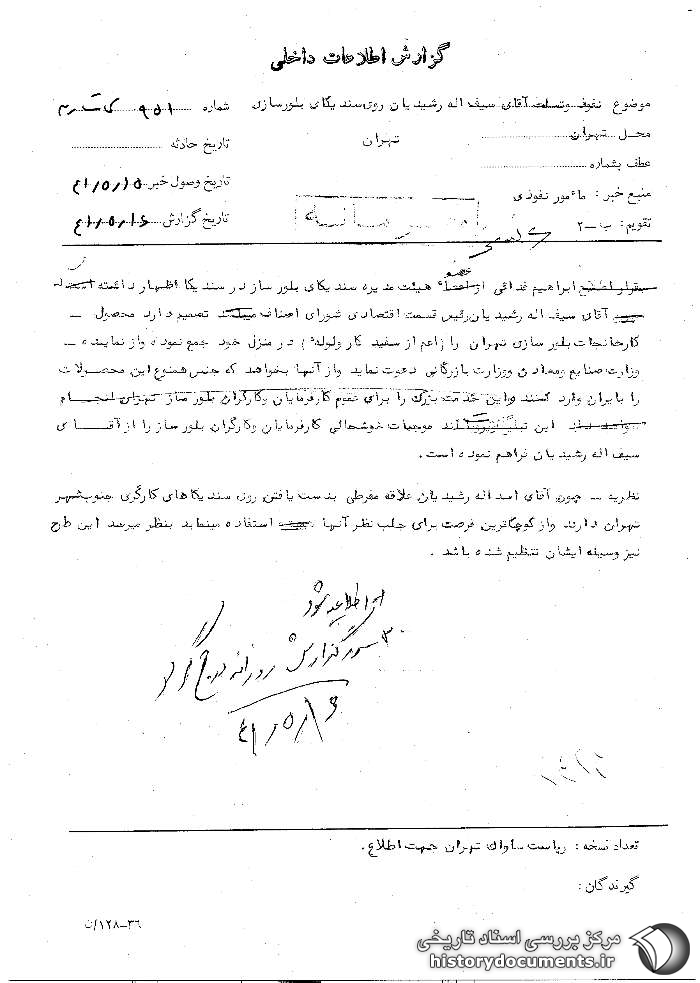 گزارش اطلاعات داخلی
موضوع نفوذ وتسلط آقای سیف اله رشیدیان روی سندیکای بلورسازی تهران
شماره ۹۵۱
محل تهران
تاریخ حادثه
عطف بشماره
تاریخ وصول خبر ۴۱/۵/۱۵
منبع خبر: مأمور نفوذی
تاریخ گزارش ۴۱/۵/۱۶
تقویم: ب-۲
ابراهیم فدائی عضو هیئت مدیره سندیکای بلور ساز در سندیکا اظهار داشته
آقای سیف اله رشیدیان رئیس قسمت اقتصادی شورای اصناف تصمیم دارد محصول -
کارخانجات بلور سازی تهران را (اعم از سفید کار ولوله) در منزل خود جمع نموده واز نماینده -
وزارت صنایع ومعادن ووزارت بازرگانی دعوت نماید واز آنها بخواهد که جنس همنوع این محصولات
را بایران وارد نکنند واین خدمت بزرگ را برای عموم کارفرمایان وکارگران بلور ساز تهران انجام
خواهد داد این موجبات خوشحالی کارفرمایان وکارگران بلور ساز را از آقـای
سیف اله رشیدیان فراهم نموده است.
نظریه - چون آقای اسد اله رشیدیان علاقه مفرطی بدست یافتن روی سندیکاهای کارگری جنوبشهر
تهران دارند واز کوچکترین فرصت برای جلب نظر آنها استفاده مینماید بنظر میرسد این طرح
نیز وسیله ایشان تنظیم شده باشد.
گزارش روزانه درج
۴۱/۵/۱۶
تعداد نسخه: ریاست ساواک تهران جهت اطلاع.
گیرندگان:
۳۶-۱۲۸/ن
مرکز بررسی اسناد تاریخی
historydocuments.ir